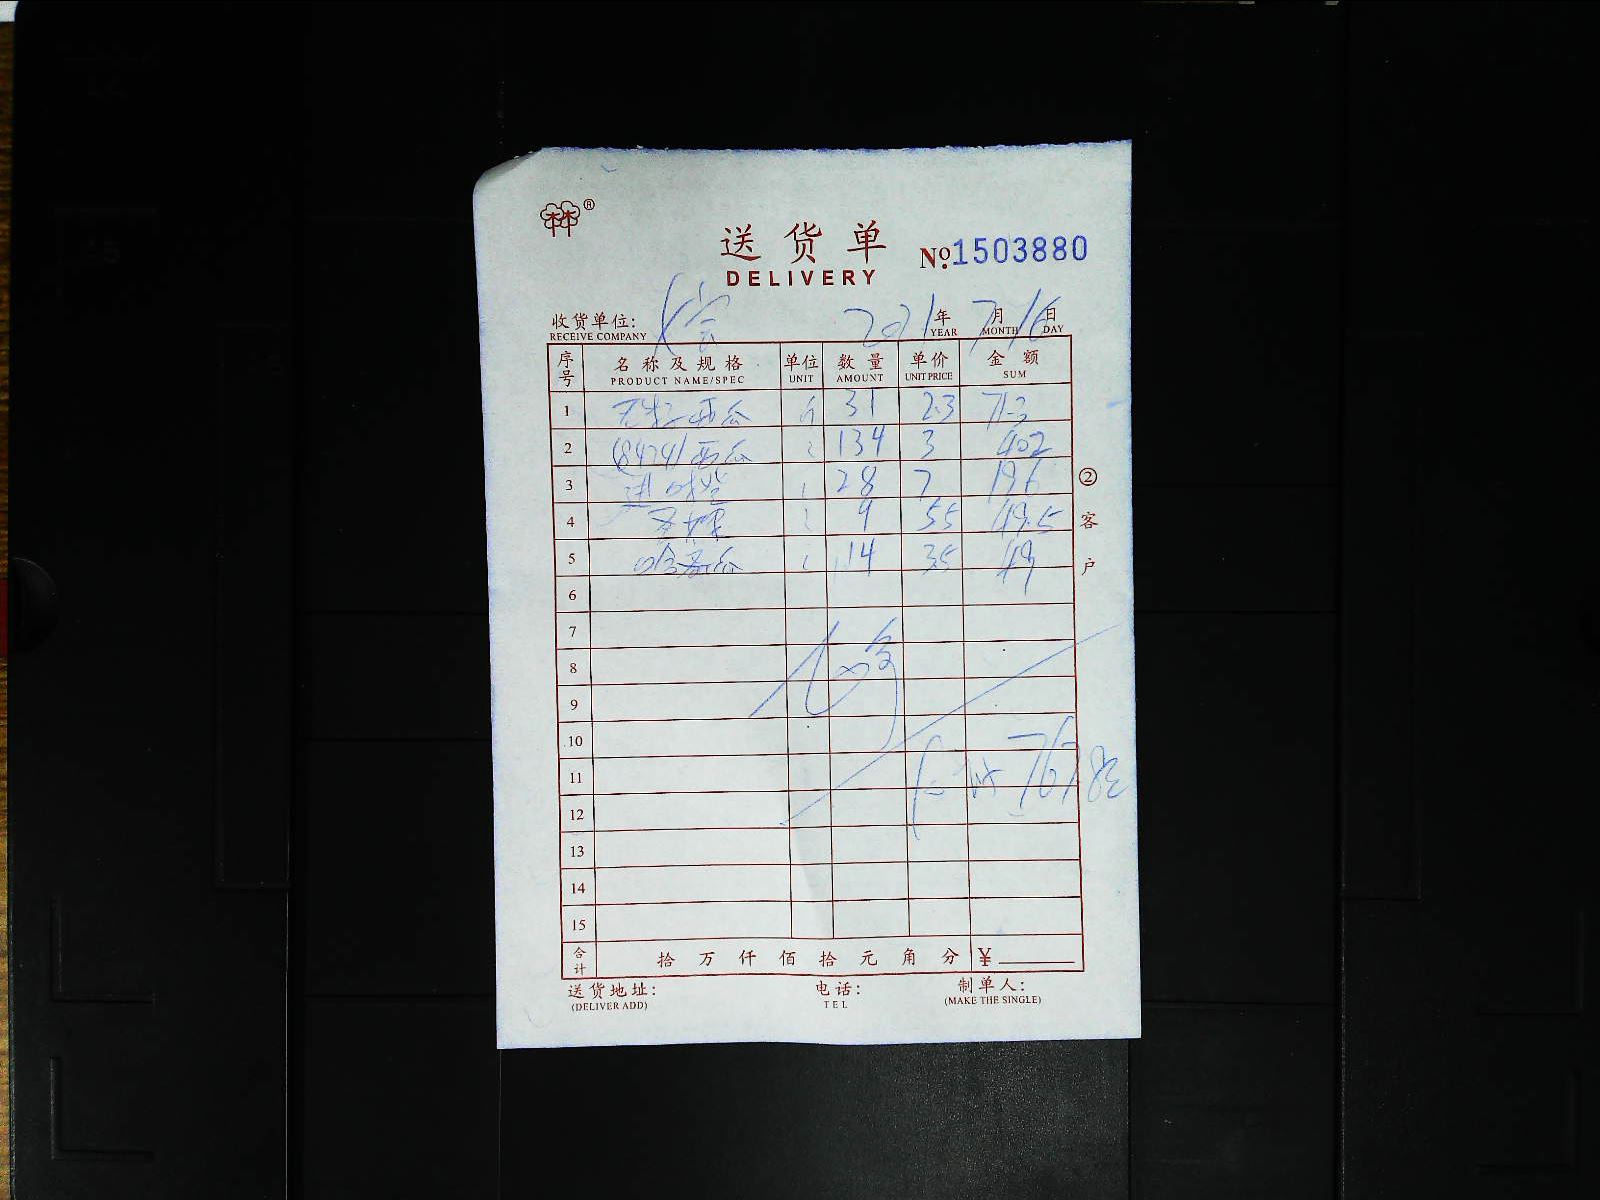 林林®
送货单
DELIVERY
№1503880
收货单位:
RECEIVE COMPANY
2021年7月16日
YEAR MONTH DAY
序号 名称及规格 单位 数量 单价 金额
PRODUCT NAME/SPEC UNIT AMOUNT UNIT PRICE SUM
1 无籽西瓜 斤 31 2.3 71.3
2 (8424)西瓜 134 3 402
3 进口橙 28 7 196
4 9 5.5 49.5
5 哈蜜瓜 14 3.5 49
6
7
8
9
10
11
12
13
14
15
767.8元
合计 拾 万 仟 佰 拾 元 角 分 ¥
送货地址: 电话: 制单人:
(DELIVER ADD) TEL (MAKE THE SINGLE)
②客户